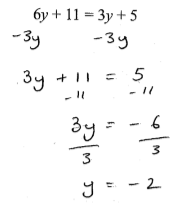 6y + 11 = 3y + 5
-3y -3y
3y + 11 = 5
-11 -11
3y = - 6
3 3
y = - 2